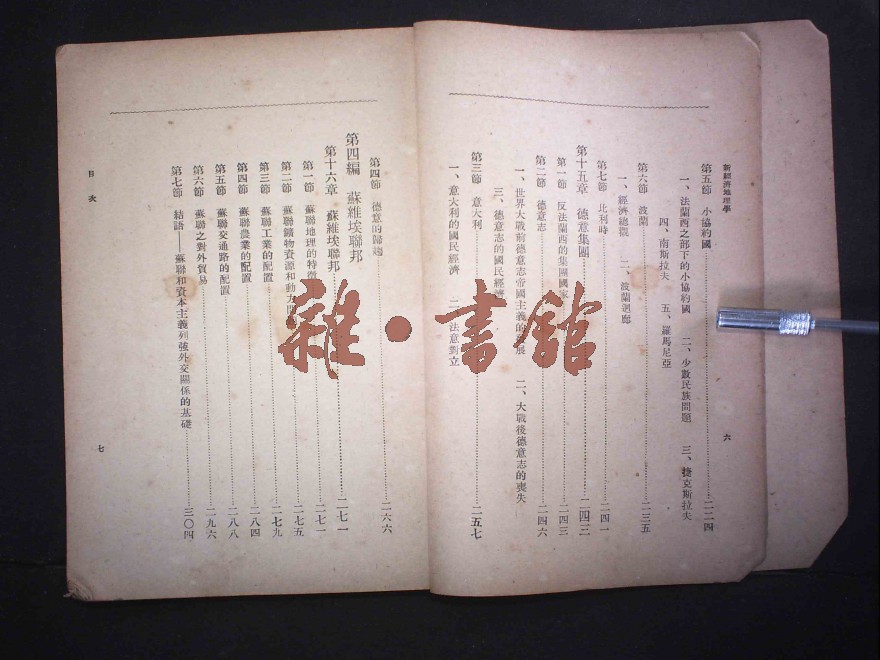 新經濟地理學
六
第五節 小協約國……二二四
一、法蘭西之部下的小協約國 二、少數民族問題 三、捷克斯拉夫
四、南斯拉夫 五、羅馬尼亞
第六節 波蘭……二三五
一、經濟總觀 二、波蘭迴廊
第七節 比利時……二四一
第十五章 德意集團……二四三
第一節 反法蘭西的集團國家……二四三
第二節 德意志……二四六
一、世界大戰前德意志帝國主義的發展 二、大戰後德意志的喪失
三、德意志的國民經濟
第三節 意大利……二五七
一、意大利的國民經濟 二、法意對立
第四節 德意的歸趨……二六六
第四編 蘇維埃聯邦
第十六章 蘇維埃聯邦……二七一
第一節 蘇聯地理的特徵……二七一
第二節 蘇聯鑛物資源和動力……二七五
第三節 蘇聯工業的配置……二七九
第四節 蘇聯農業的配置……二八四
第五節 蘇聯交通路的配置……二八八
第六節 蘇聯之對外貿易……二九六
第七節 結語——蘇聯和資本主義列強外交關係的基礎……三〇四
目次
七
雜·書館